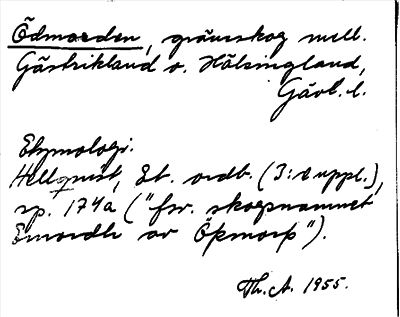 Ödmorden, gränsskog mell.
Gästrikland o. Hälsingland,
Gävl. l.
Etymologi:
Hellquist, Et. ordb. (3:e uppl.),
sp. 174a ("fsv. skogsnamnet
Emordh av Öþmorþ").
Th. A. 1955.